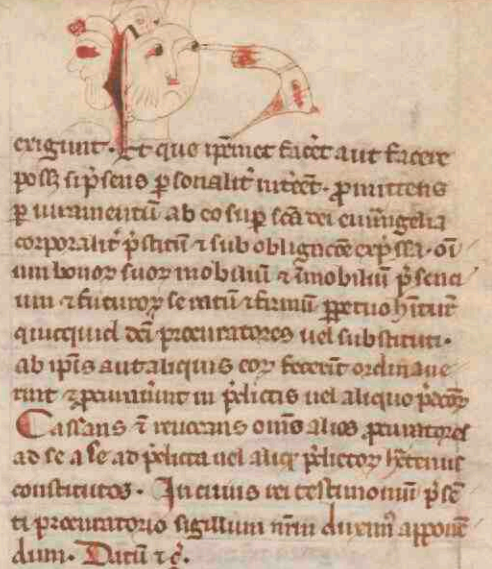 exigunt. Et que ip̄emet facēt aut facere
poss; si p̄sens ꝑsonalit̄ int̄eēt. ꝓmittens
ꝑ iuramentū ab eo sup̱ scā dei euu̅ngelia
corporalit̄ p̄stitū ⁊ sub obligac̄oe exp̄ssa. oī
um bonoꝝ suoꝝ mobiliū ⁊ īmobiliū p̄senci
um ⁊ futuroꝝ se ratū ⁊ firmū ꝑpetuo
quicquid dc̄i procuratores uel substituti.
ab ip̄is aut aliquis eoꝝ fecerīt ordinaue
rint in p̄dictis uel aliquo p̄dc̄oꝝ
Cassans ⁊ reuocans om̄s alios ꝓcuratores
ad se a se ad p̄dicta uel aliqͥ p̄dictoꝝ hc̄tenus
constitutos. In cuius rei testimoniū p̄sē
ti procuratorio sigillum nr̄m duxim᷒ apponē
dum. Datū ⁊ c̄.